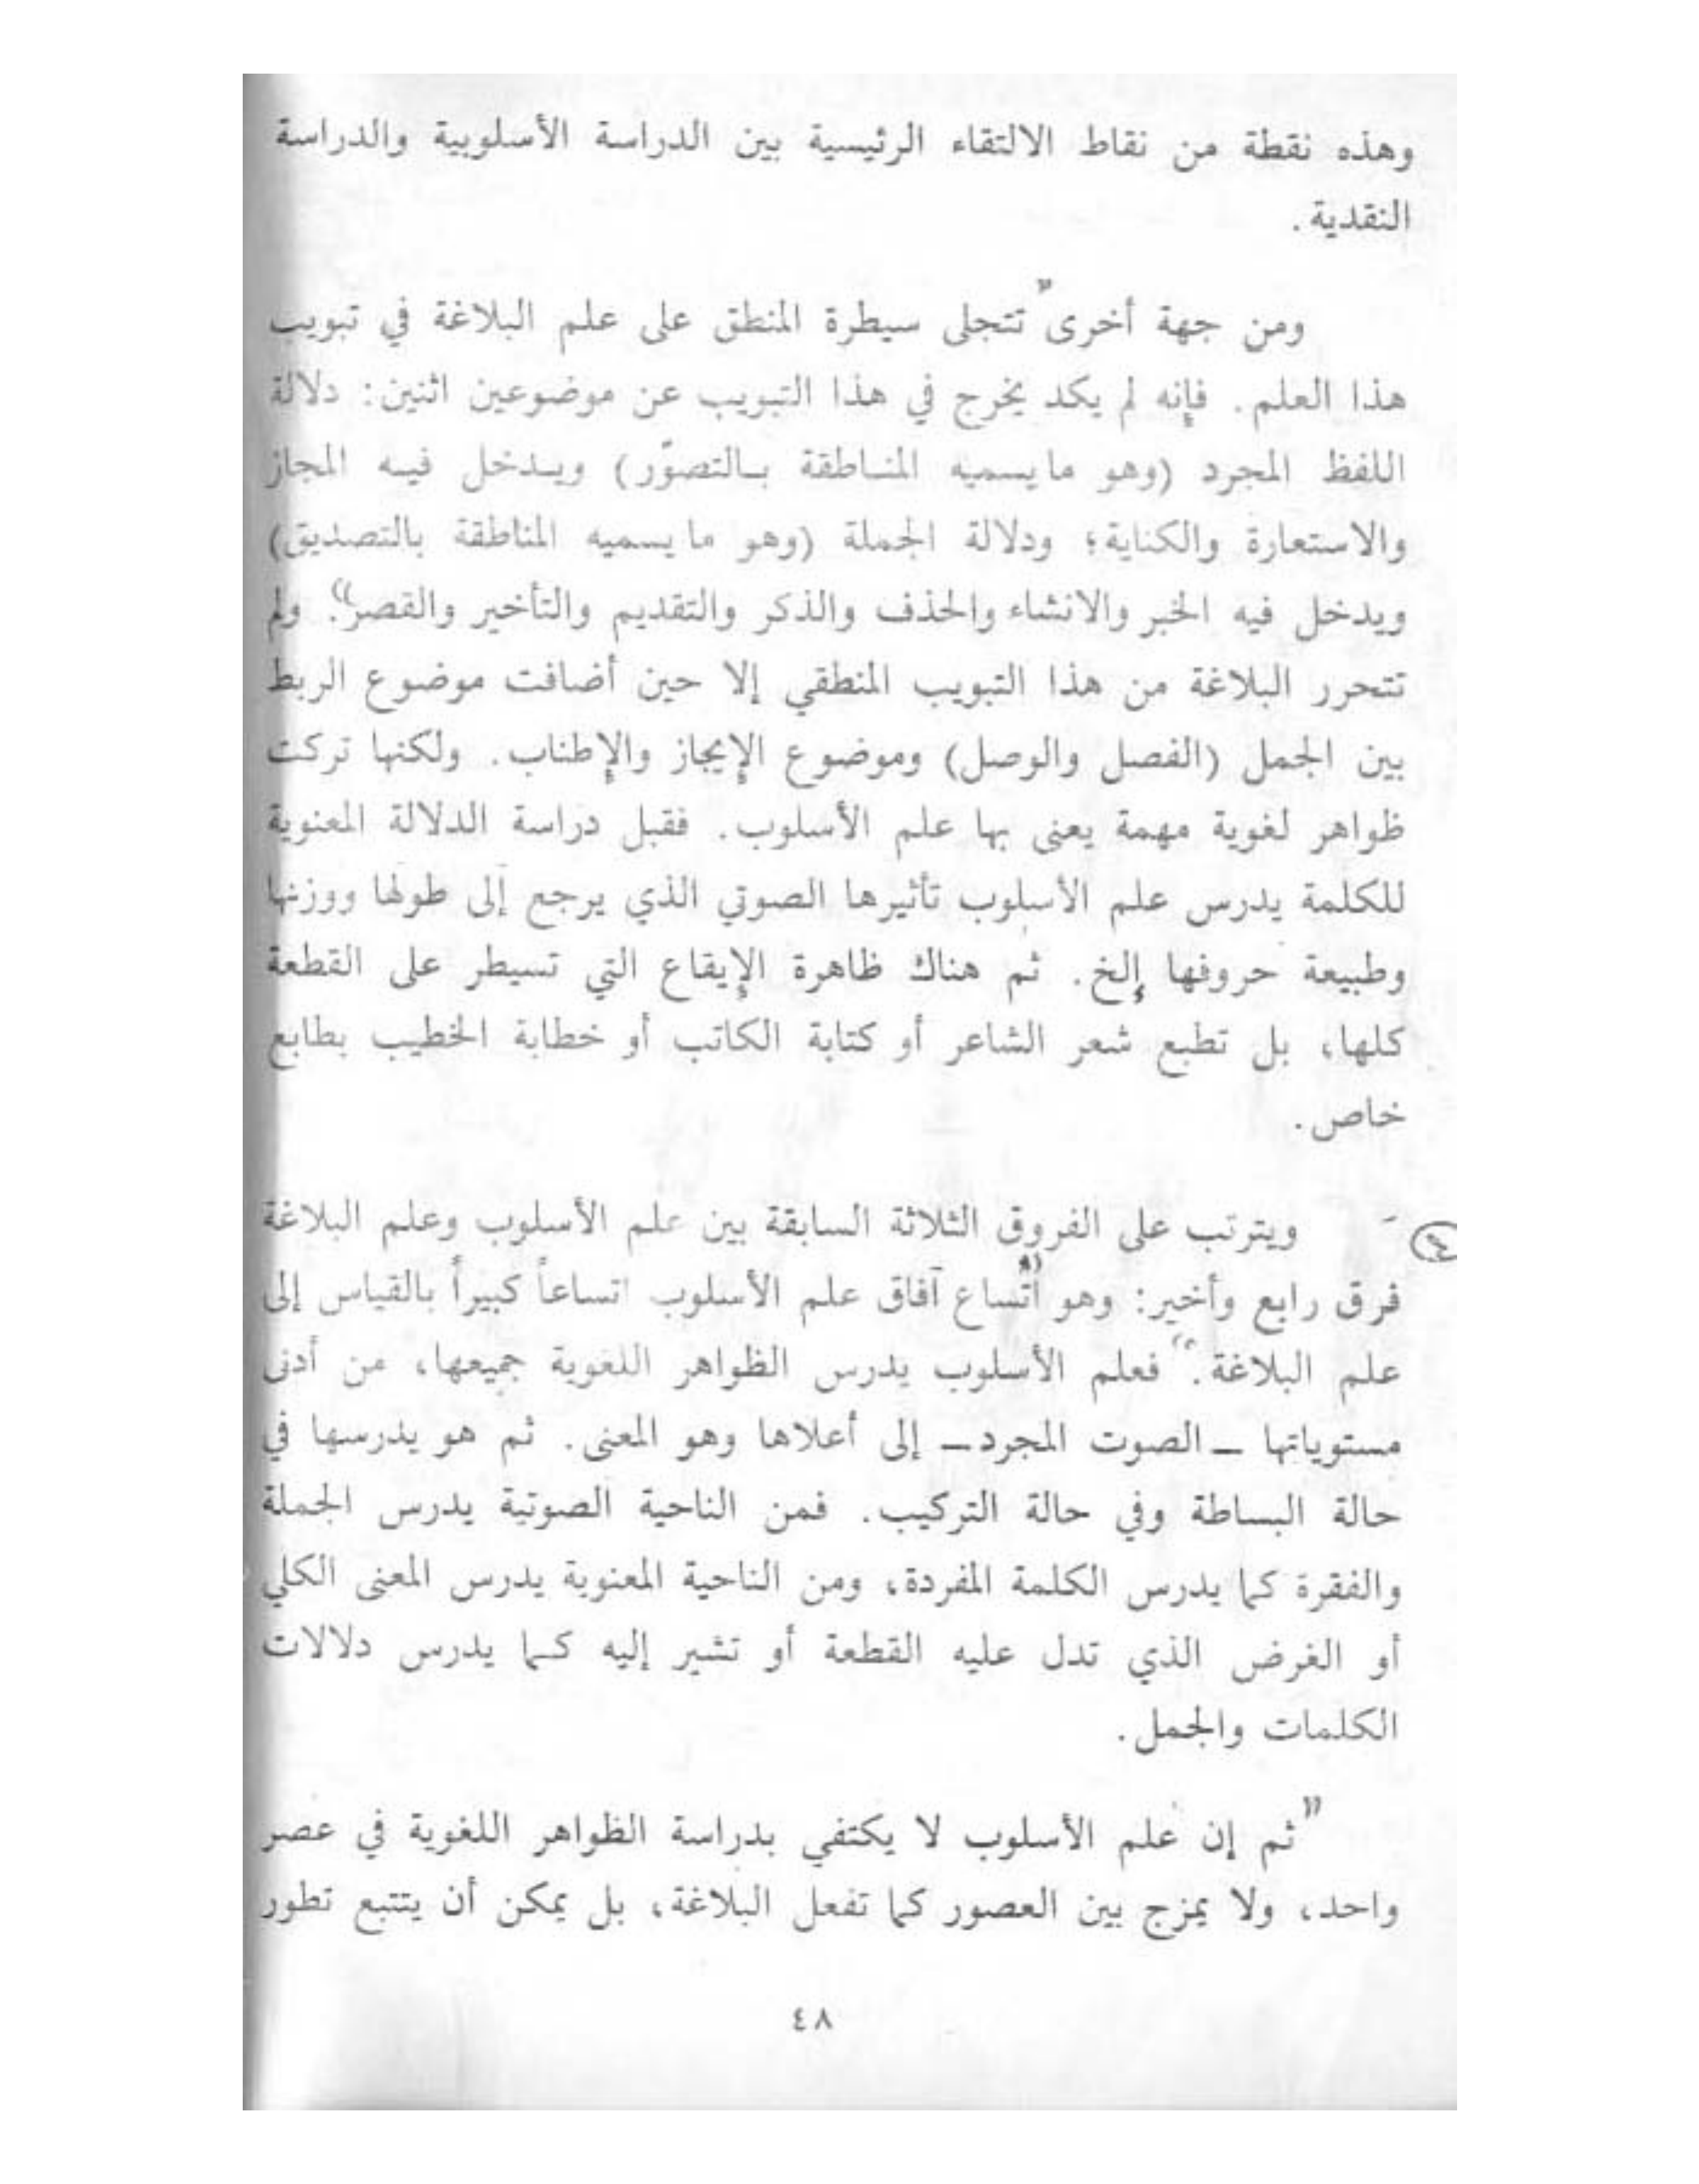 وهذه نقطة من نقاط الالتقاء الرئيسية بين الدراسة الأسلوبية والدراسة
النقدية.
ومن جهة أخرى " تتجلى سيطرة المنطق على علم البلاغة في تبويب
هذا العلم. فإنه لم يكد يخرج في هذا التبويب عن موضوعين اثنين: دلالة
اللفظ المجرد (وهو ما يسميه المناطقة بالتصوّر) ويدخل فيه المجاز
والاستعارة والكناية؛ ودلالة الجملة (وهو ما يسميه المناطقة بالتصديق)
ويدخل فيه الخبر والانشاء والحذف والذكر والتقديم والتأخير والقصر". ولم
تتحرر البلاغة من هذا التبويب المنطقي إلا حين أضافت موضوع الربط
بين الجمل (الفصل والوصل) وموضوع الإيجاز والإطناب. ولكنها تركت
ظواهر لغوية مهمة يعنى بها علم الأسلوب. فقبل دراسة الدلالة المعنوية
للكلمة يدرس علم الأسلوب تأثيرها الصوتي الذي يرجع إلى طولها ووزنها
وطبيعة حروفها إلخ. ثم هناك ظاهرة الإيقاع التي تسيطر على القطعة
كلها، بل تطبع شعر الشاعر أو كتابة الكاتب أو خطابة الخطيب بطابع
خاص.
٤ - ويترتب على الفروق الثلاثة السابقة بين علم الأسلوب وعلم البلاغة
فرق رابع وأخير: وهو "اتساع آفاق علم الأسلوب اتساعاً كبيراً بالقياس إلى
علم البلاغة." فعلم الأسلوب يدرس الظواهر اللغوية جميعها، من أدنى
مستوياتها ــ الصوت المجرد ــ إلى أعلاها وهو المعنى. ثم هو يدرسها في
حالة البساطة وفي حالة التركيب. فمن الناحية الصوتية يدرس الجملة
والفقرة كما يدرس الكلمة المفردة، ومن الناحية المعنوية يدرس المعنى الكلي
أو الغرض الذي تدل عليه القطعة أو تشير إليه كما يدرس دلالات
الكلمات والجمل.
"ثم إن علم الأسلوب لا يكتفي بدراسة الظواهر اللغوية في عصر
واحد، ولا يمزج بين العصور كما تفعل البلاغة، بل يمكن أن يتتبع تطور
٤٨